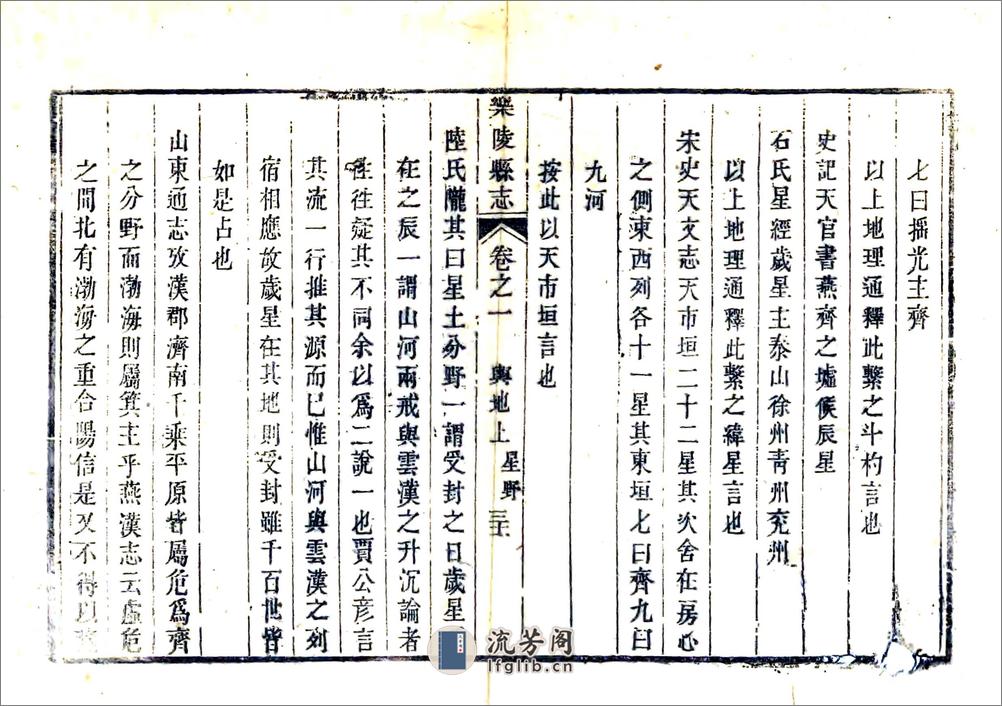 七曰搖光主齊
以上地理通釋此繫之斗杓言也
史記天官書燕齊之墟候辰星
石氏星經歲星主泰山徐州靑州兖州
以上地理通釋此繫之緯星言也
宋史天文志天市垣二十二星其次舍在房心
之側東西列各十一星其東垣七曰齊九曰
九河
按此以天市垣言也
樂陵縣志 卷之一 輿地上 星野
陸氏隴其曰星土分野一謂受封之日歲星
在之辰一謂山河兩戒與雲漢之升沉論者
徃徃疑其不同余以爲二說一也賈公彥言
其流一行推其源而已惟山河與雲漢之列
宿相應故歲星在其地則受封雖千百世皆
如是占也
山東通志攷漢郡濟南千乘平原皆屬危爲齊
之分野而渤海則屬箕主乎燕漢志云虛危
之間北有渤海之重合陽信是又不得以
流芳阁
lfglib.cn